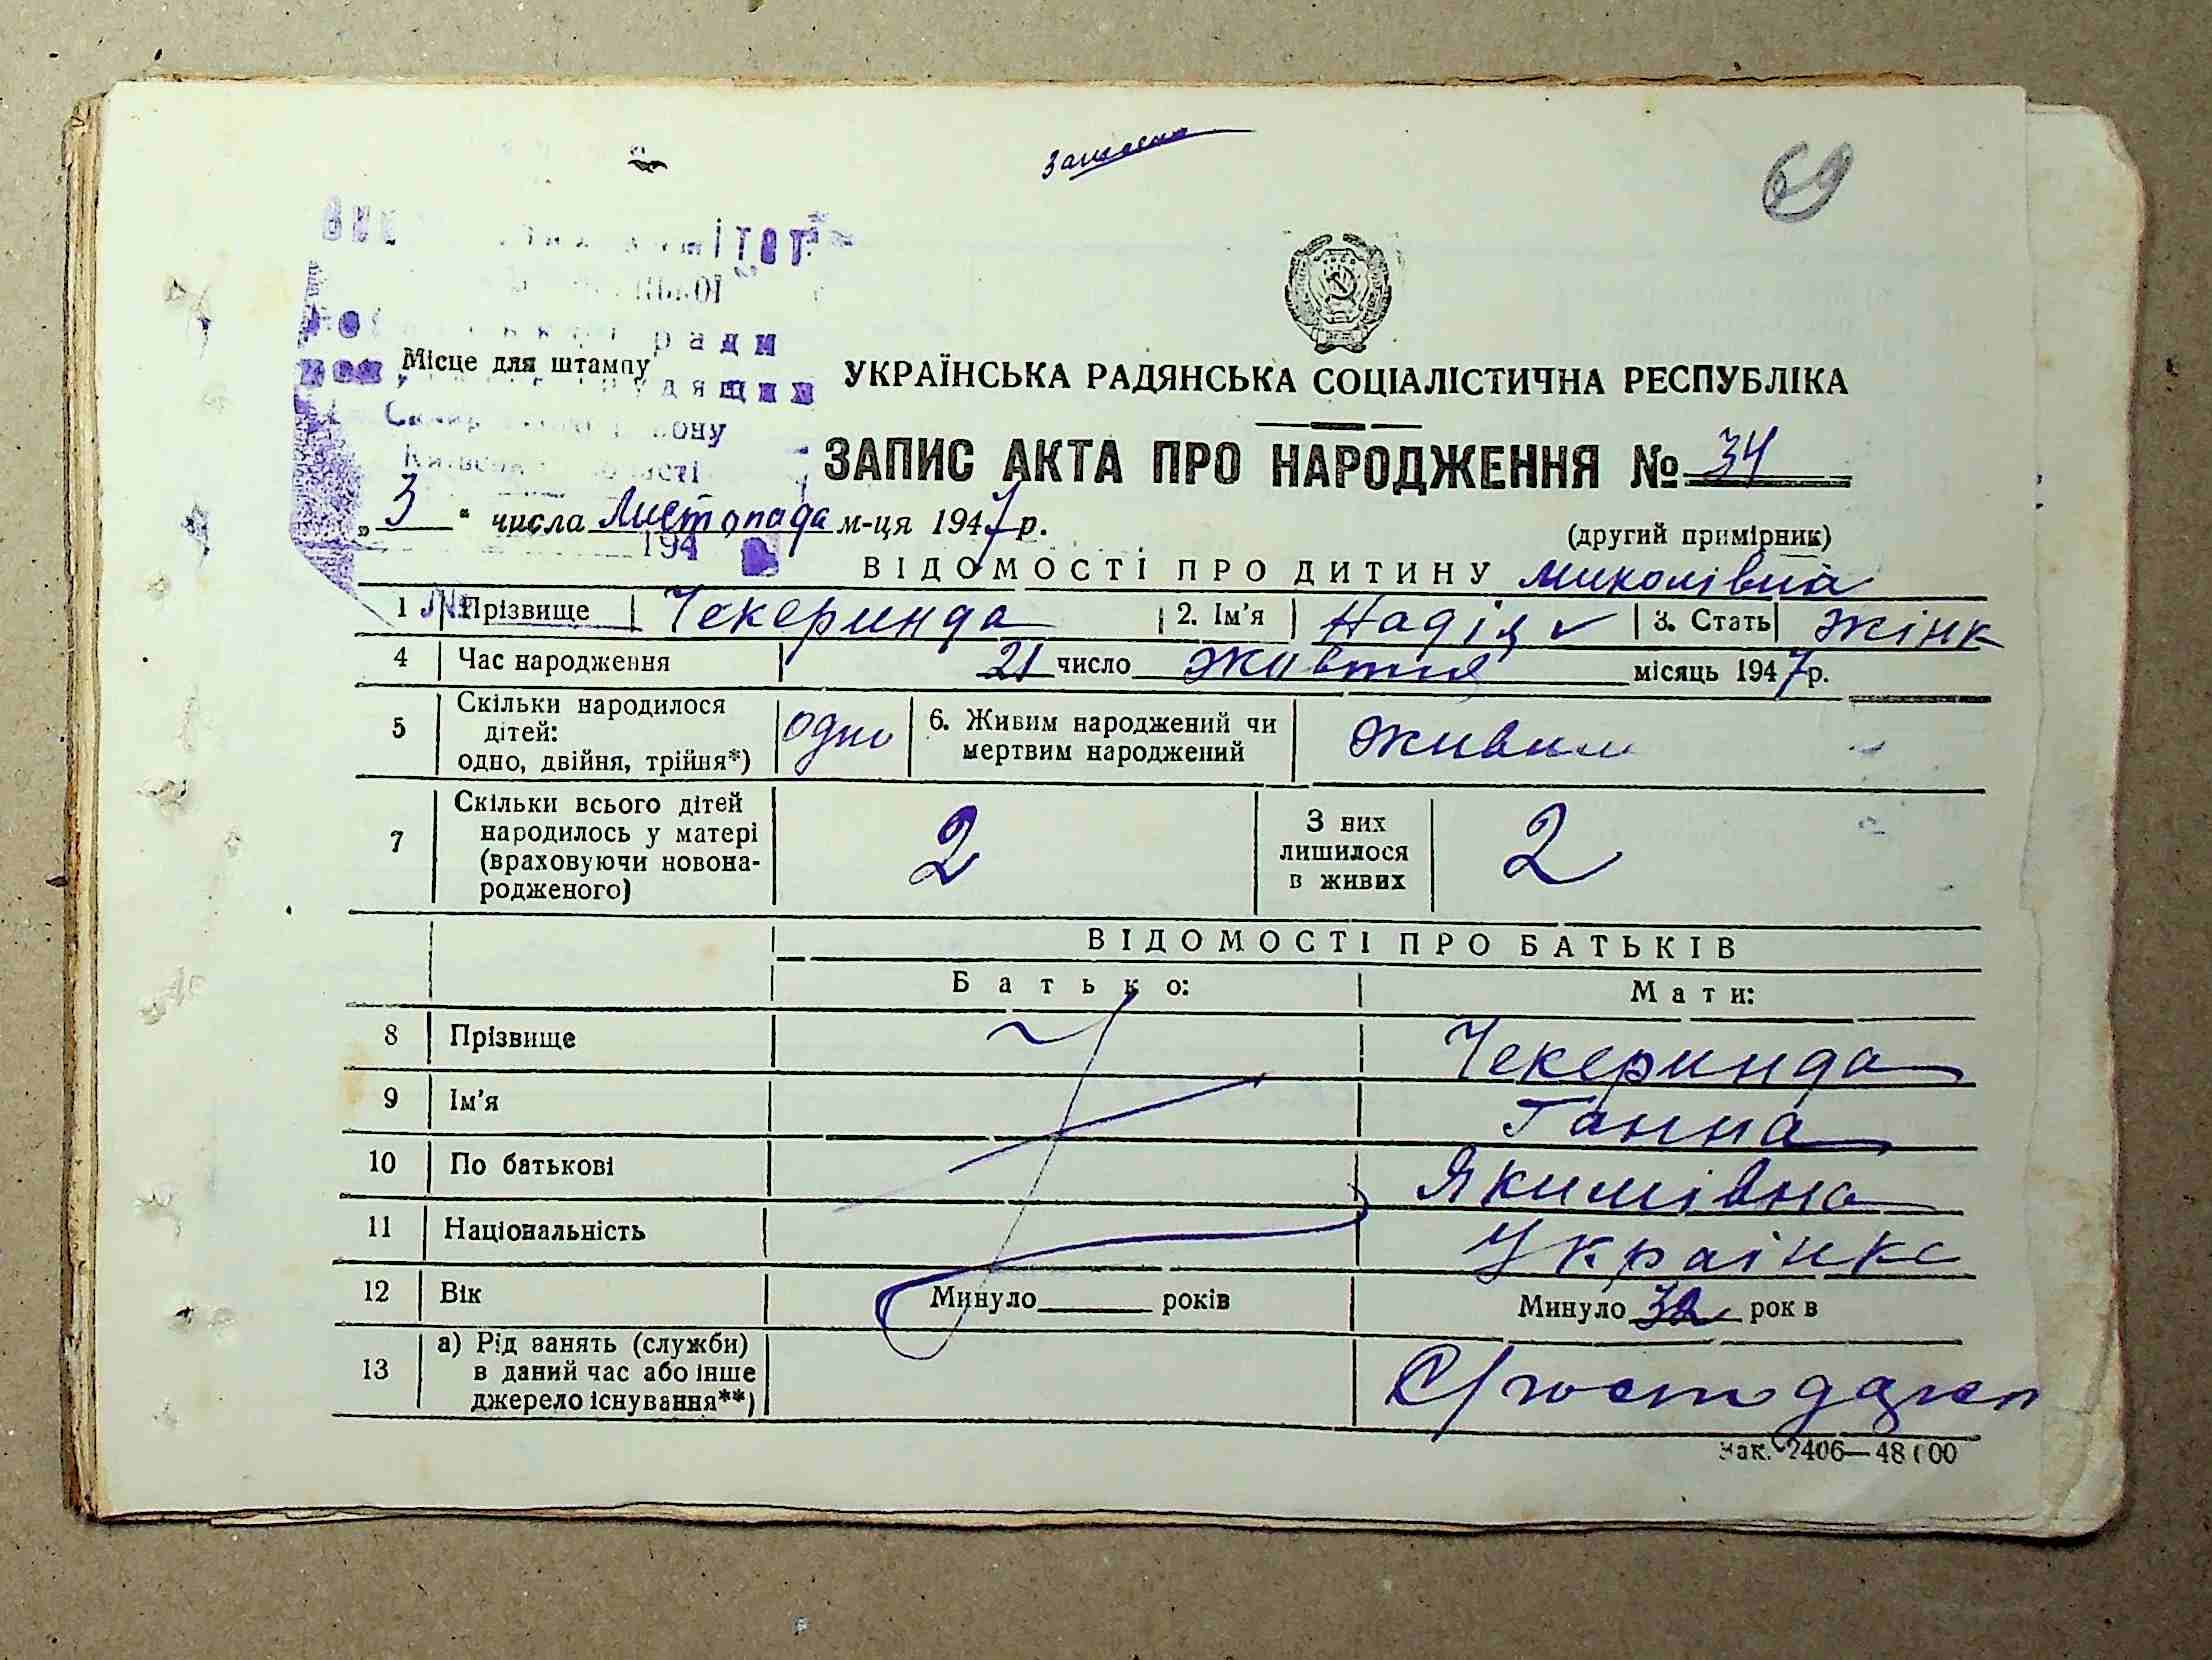 69
ради
Місце для штампу
УКРАЇНСЬКА РАДЯНСЬКА СОЦІАЛІСТИЧНА РЕСПУБЛІКА
ЗАПИС АКТА ПРО НАРОДЖЕННЯ № 34
„3“ числа Листопада м-ця 1947 р.
(другий примірник)
194
ВІДОМОСТІ ПРО ДИТИНУ Миколівна
1 Прізвище Чекеринда 2. Ім'я Надія 3. Стать жінк
4 Час народження 21 число жовтня місяць 1947 р.
5 Скільки народилося дітей: одно, двійня, трійня*) одно 6. Живим народжений чи мертвим народжений живим
7 Скільки всього дітей народилось у матері (враховуючи новонародженого) 2 З них лишилося в живих 2
ВІДОМОСТІ ПРО БАТЬКІВ
Батько: Мати:
8 Прізвище Чекеринда
9 Ім'я Ганна
10 По батькові Якимівна
11 Національність Українка
12 Вік Минуло років Минуло 32 років
13 а) Рід занять (служби) в даний час або інше джерело існування**)
Зак. 2406—48000